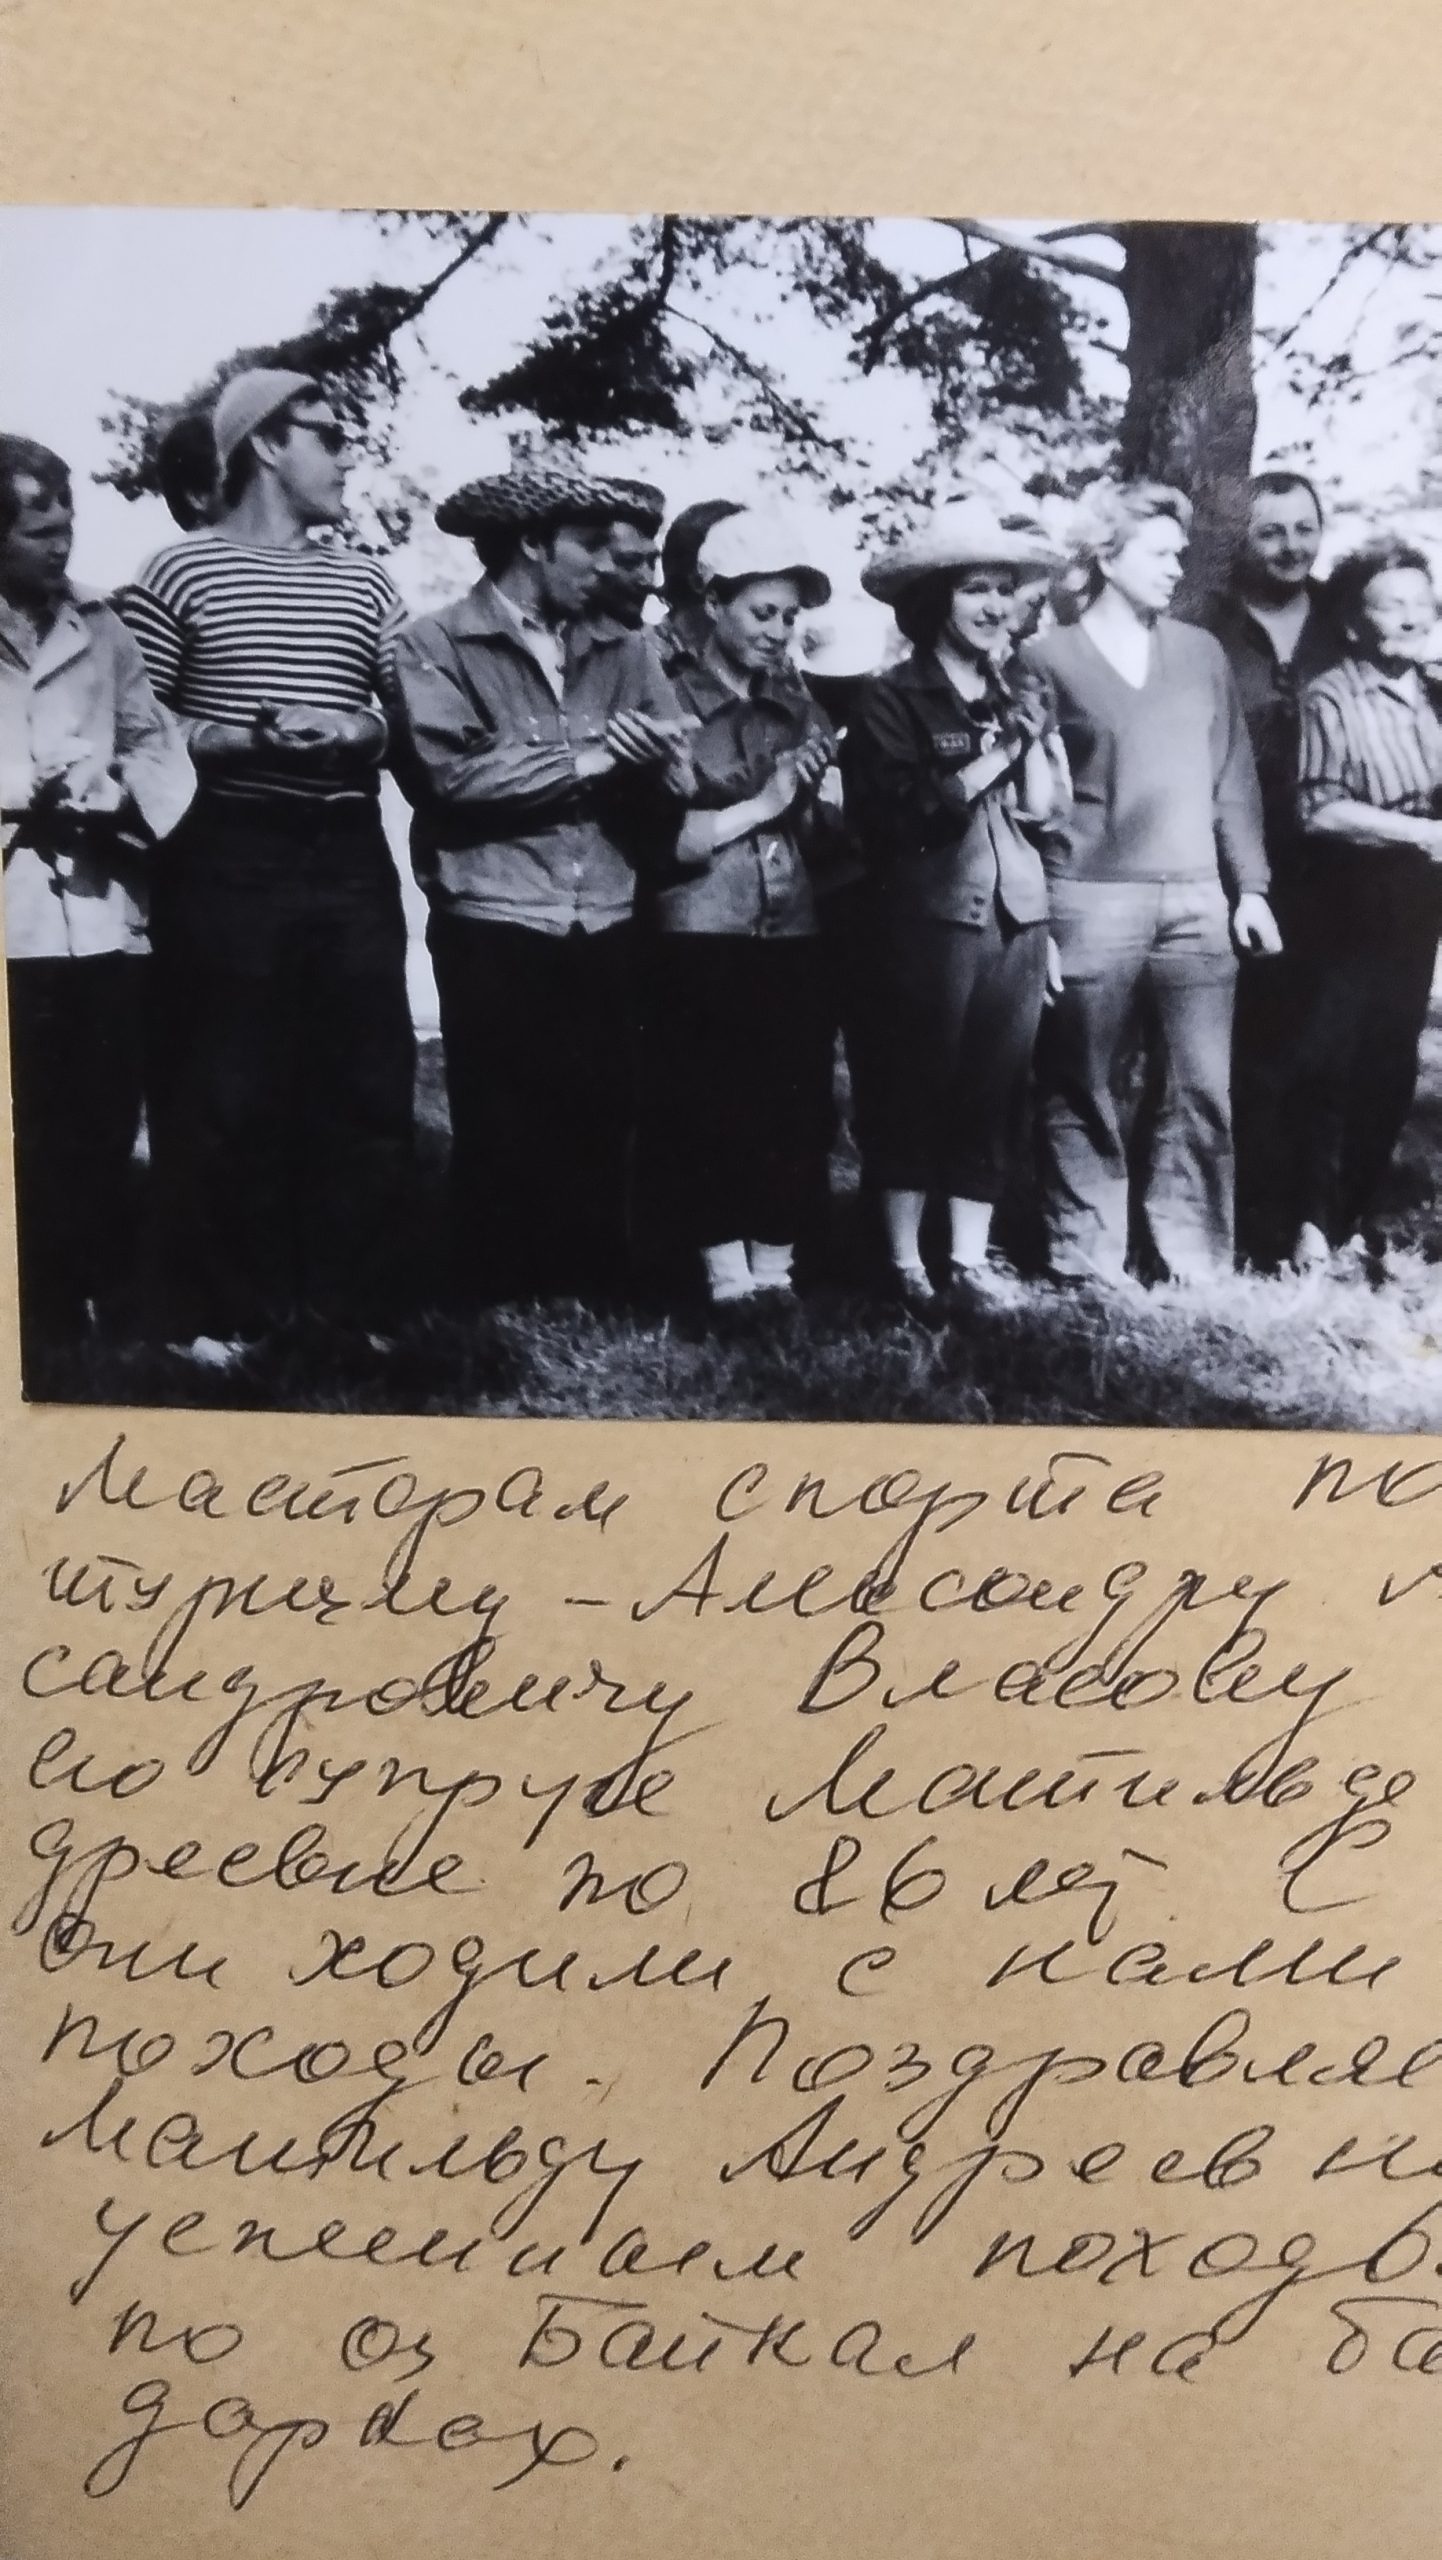 Мастерам спорта по
туризму – Александру
сандровичу Власову
его супруге Матильде
дреевне по 86 лет. С
они ходили с нами
походы. Поздравляе
Матильду Андреевн
успешным походо
по оз Байкал на ба
дарках.